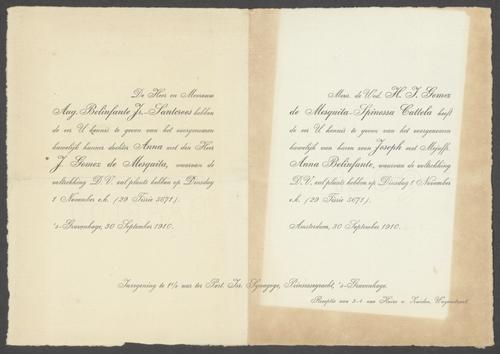 De Heer en Mevrouw
Aug. Belinfante Jr.-Santcroos hebben
de eer U kennis te geven van het voorgenomen
huwelijk hunner dochter Anna met den Heer
J. Gomez de Mesquita, waarvan de
voltrekking D.V. zal plaats hebben op Dinsdag
1 November e.k. (29 Tisrie 5671).
's-Gravenhage, 30 September 1910.
Mevr. de Wed. H. J. Gomez
de Mesquita-Spinossa Cattela heeft
de eer U kennis te geven van het voorgenomen
huwelijk van haren zoon Joseph met Mejuffr.
Anna Belinfante, waarvan de voltrekking
D.V. zal plaats hebben op Dinsdag 1 November
e.k. (29 Tisrie 5671).
Amsterdam, 30 September 1910.
Inzegening te 1½ uur ter Port. Isr. Synagoge, Prinsessegracht, 's-Gravenhage.
Receptie van 3-4 uur Huize v. Wagenstraat